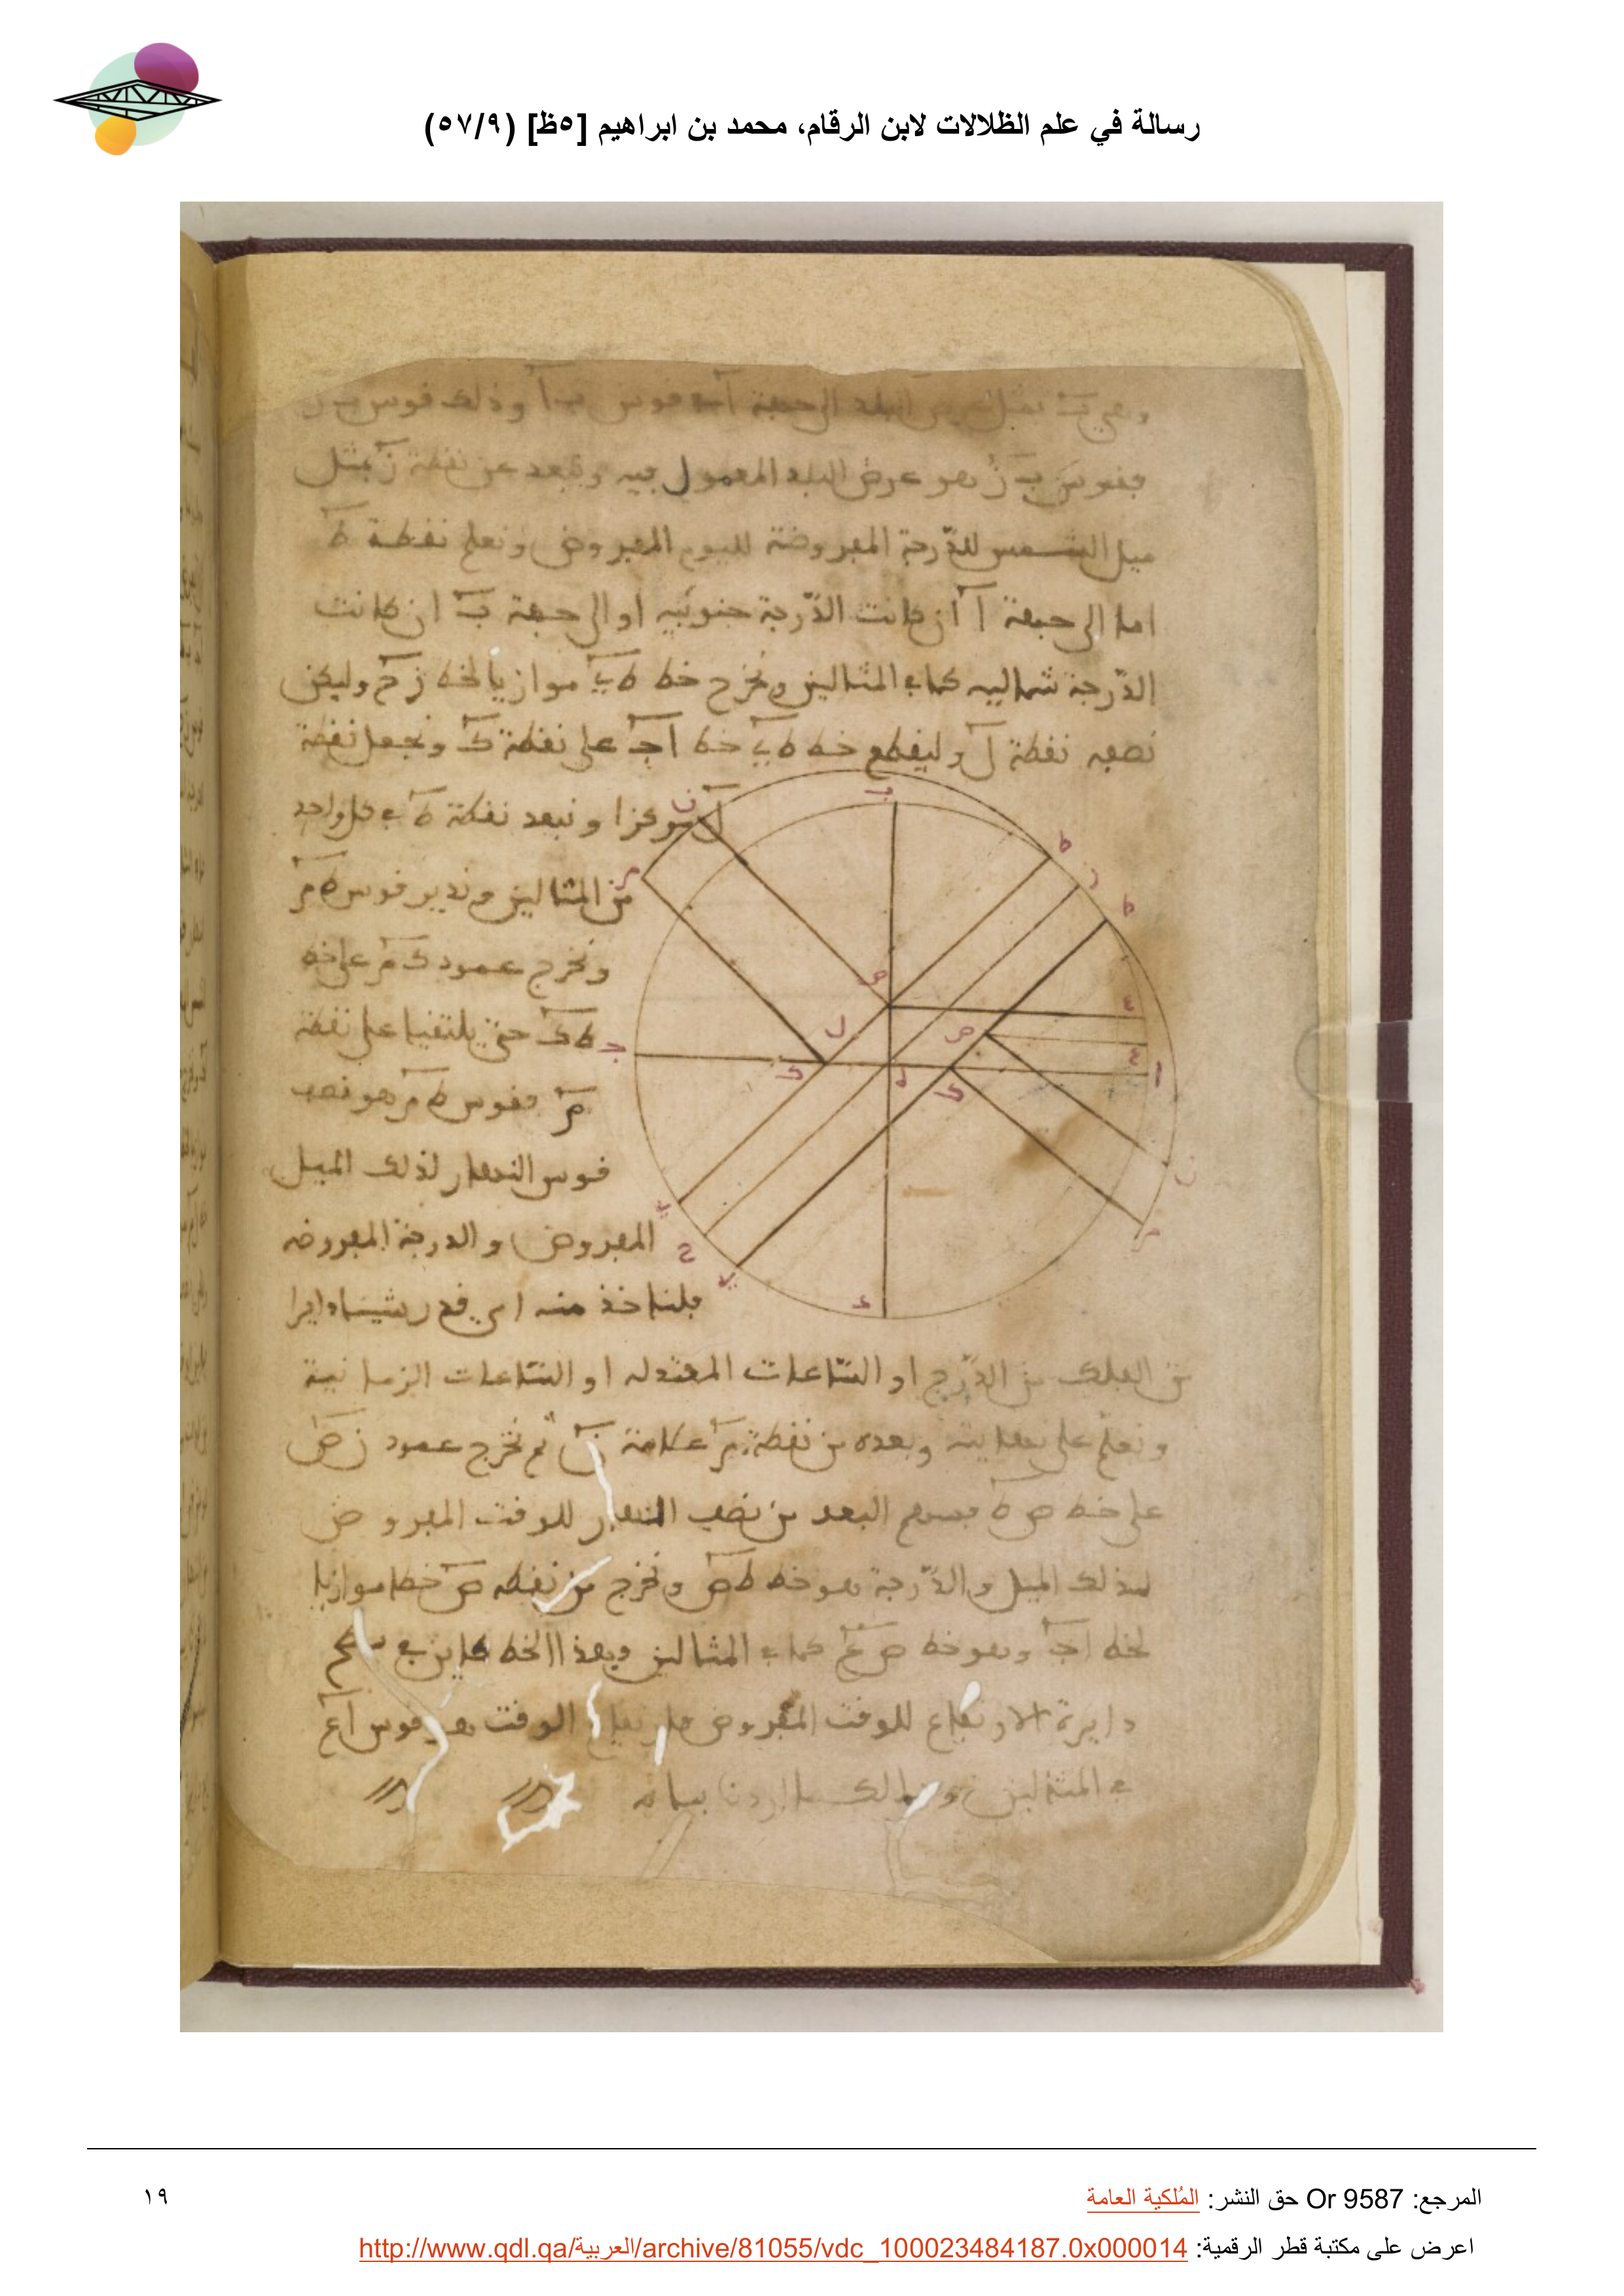 رسالة في علم الظلالات لابن الرقام، محمد بن ابراهيم [٥ظ] (٥٧/٩)
البلد الى جهة آ قوس ب آ وذلك قوس ب ز
فقوس ب ز هو عرض البلد المعمول فيه ونبعد عن نقطة ز بمثل
ميل الشمس للدّرجة المفروضة لليوم المفروض ونعلم نقطة ط
اما الى جهة آ ان كانت الدّرجة جنوبيه او الى جهة ب ان كانت
الدّرجة شماليه كما في المثالين ونخرج خط ط ي موازيا لخط ز ح وليكن
نصفه نقطة ل وليقطع خط ط ي خط ا ج على نقطة ك ونجعل نقطة
ل مركزا و نبعد نقطة ط في كل واحد
من المثالين وندير قوس ط م
ونخرج عمود ك م على خط
ط ك حتى يلتقيا على نقطة
م فقوس ط م هو نصف
قوس النهار لذلك الميل
المفروض و الدرجة المفروضه
فلناخذ منه اي قدر شيناه دايرا
من الفلك من الدّرج او السّاعات المعتدله او السّاعات الزمانية
ونعلّم على نهايته وبعده من نقطة م علامة ن ثم نخرج عمود ن ص
على خط ص ط فسهم البعد من نصف النهار للوقت المفروض
لذلك الميل والدّرجة هو خط ط ص ونخرج من نقطه ص خطا موازيا
لخط ا ج وهو خط ص ع كما في المثالين وهذا الخط كاين في سطح
دايرة الارتفاع للوقت المفروض فارتفاع الوقت هو قوس ا ع
في المثالين وذلك ما اردنا بيانه
ب
ن
م
ط
ز
ط
ص
ع
ل
ص
ع
ج
ك
ه
ا
ك
ن
ي
م
ح
ي
د
المرجع: Or 9587 حق النشر: المُلكية العامة
١٩
اعرض على مكتبة قطر الرقمية: http://www.qdl.qa/العربية/archive/81055/vdc_100023484187.0x000014